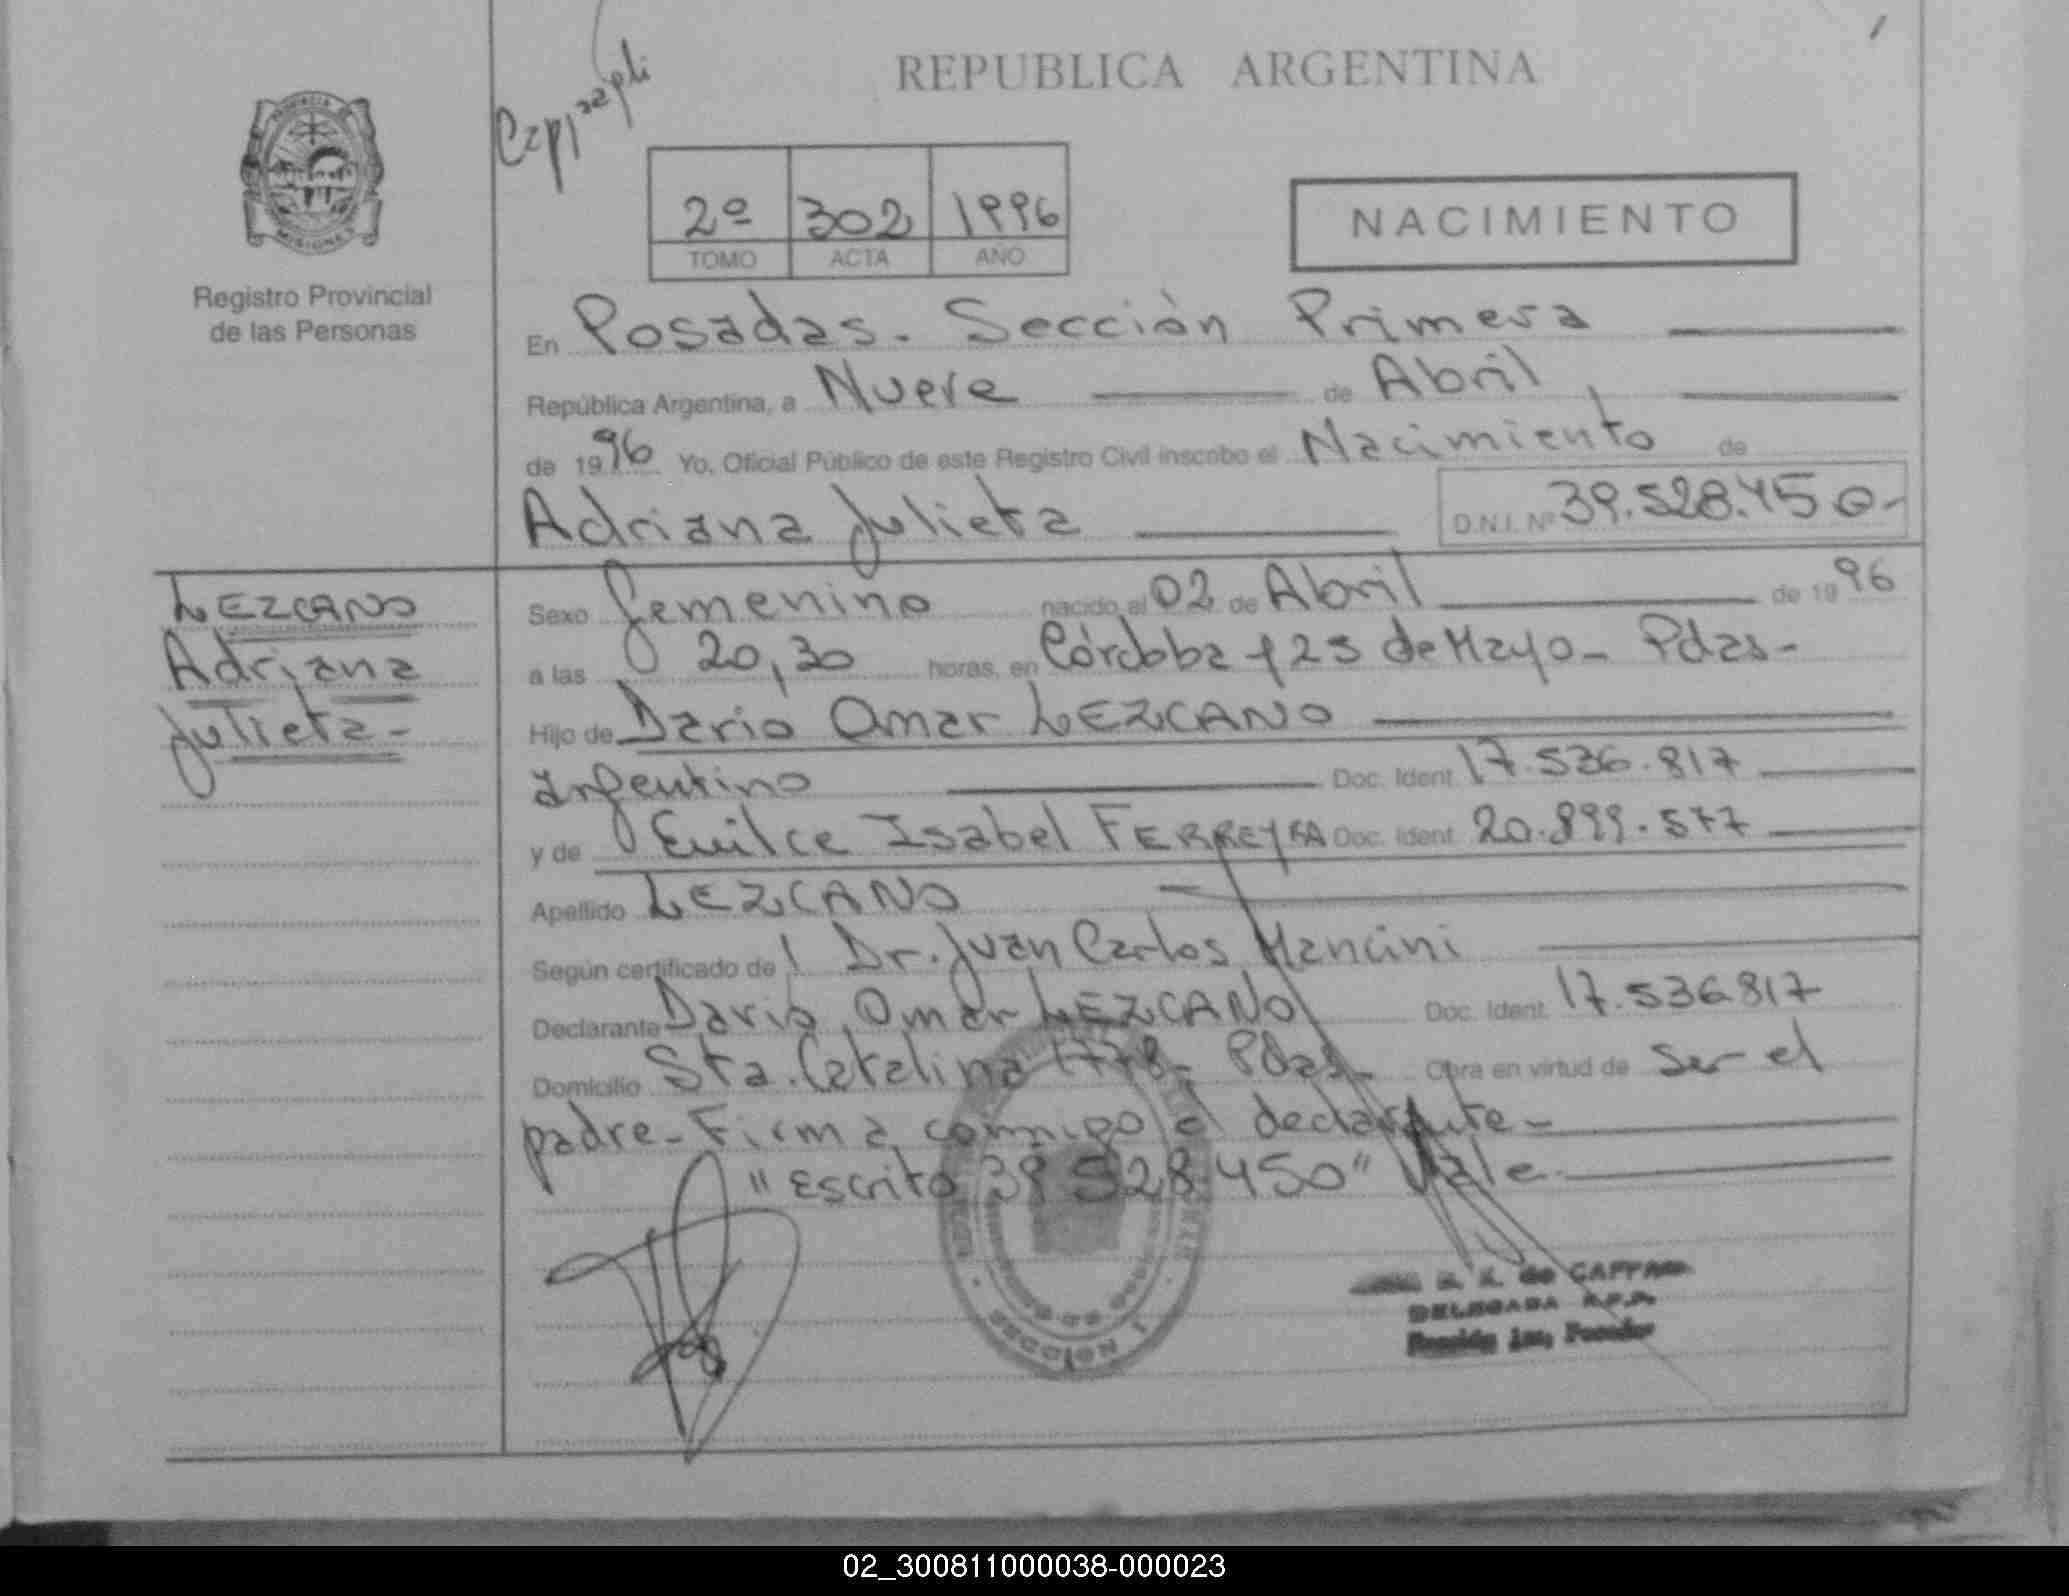 REPUBLICA ARGENTINA
PROVINCIA
MISIONES
Registro Provincial
de las Personas
2º 302 1996
TOMO ACTA AÑO
NACIMIENTO
En Posadas. Sección Primera
República Argentina, a Nueve de Abril,
de 1996 Yo, Oficial Público de este Registro Civil inscribo el Nacimiento de
Adriana Julieta D.N.I. Nº 39.528.450-
LEZCANO
Adriana
Julieta-
Sexo femenino nacido el 02 de Abril de 1996
a las 20,30 horas, en Córdoba y 25 de Mayo- Pdas-
Hijo de Dario Omar LEZCANO
argentino Doc. Ident. 17.536.817
y de Emilce Isabel FERREYRA Doc. Ident. 20.899.577
Apellido LEZCANO
Según certificado de Dr. Juan Carlos Mancini
Declarante Dario Omar LEZCANO Doc. Ident. 17.536817
Domicilio Sta. Catalina 1778- Pdas- Obra en virtud de ser el
padre- Firma conmigo el declarante-
"Escrito 39 528 450" Vale-
de
DELEGADA R.P.P.
Sección 1ra, Posadas
02_300811000038-000023